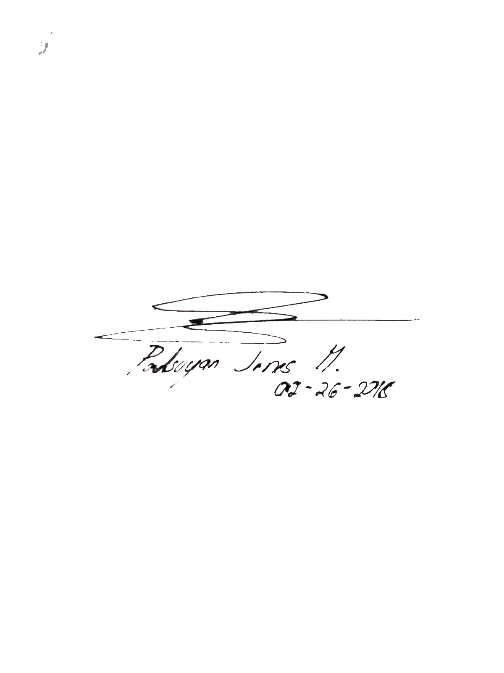 Pabuyan James M.
02-26-2018